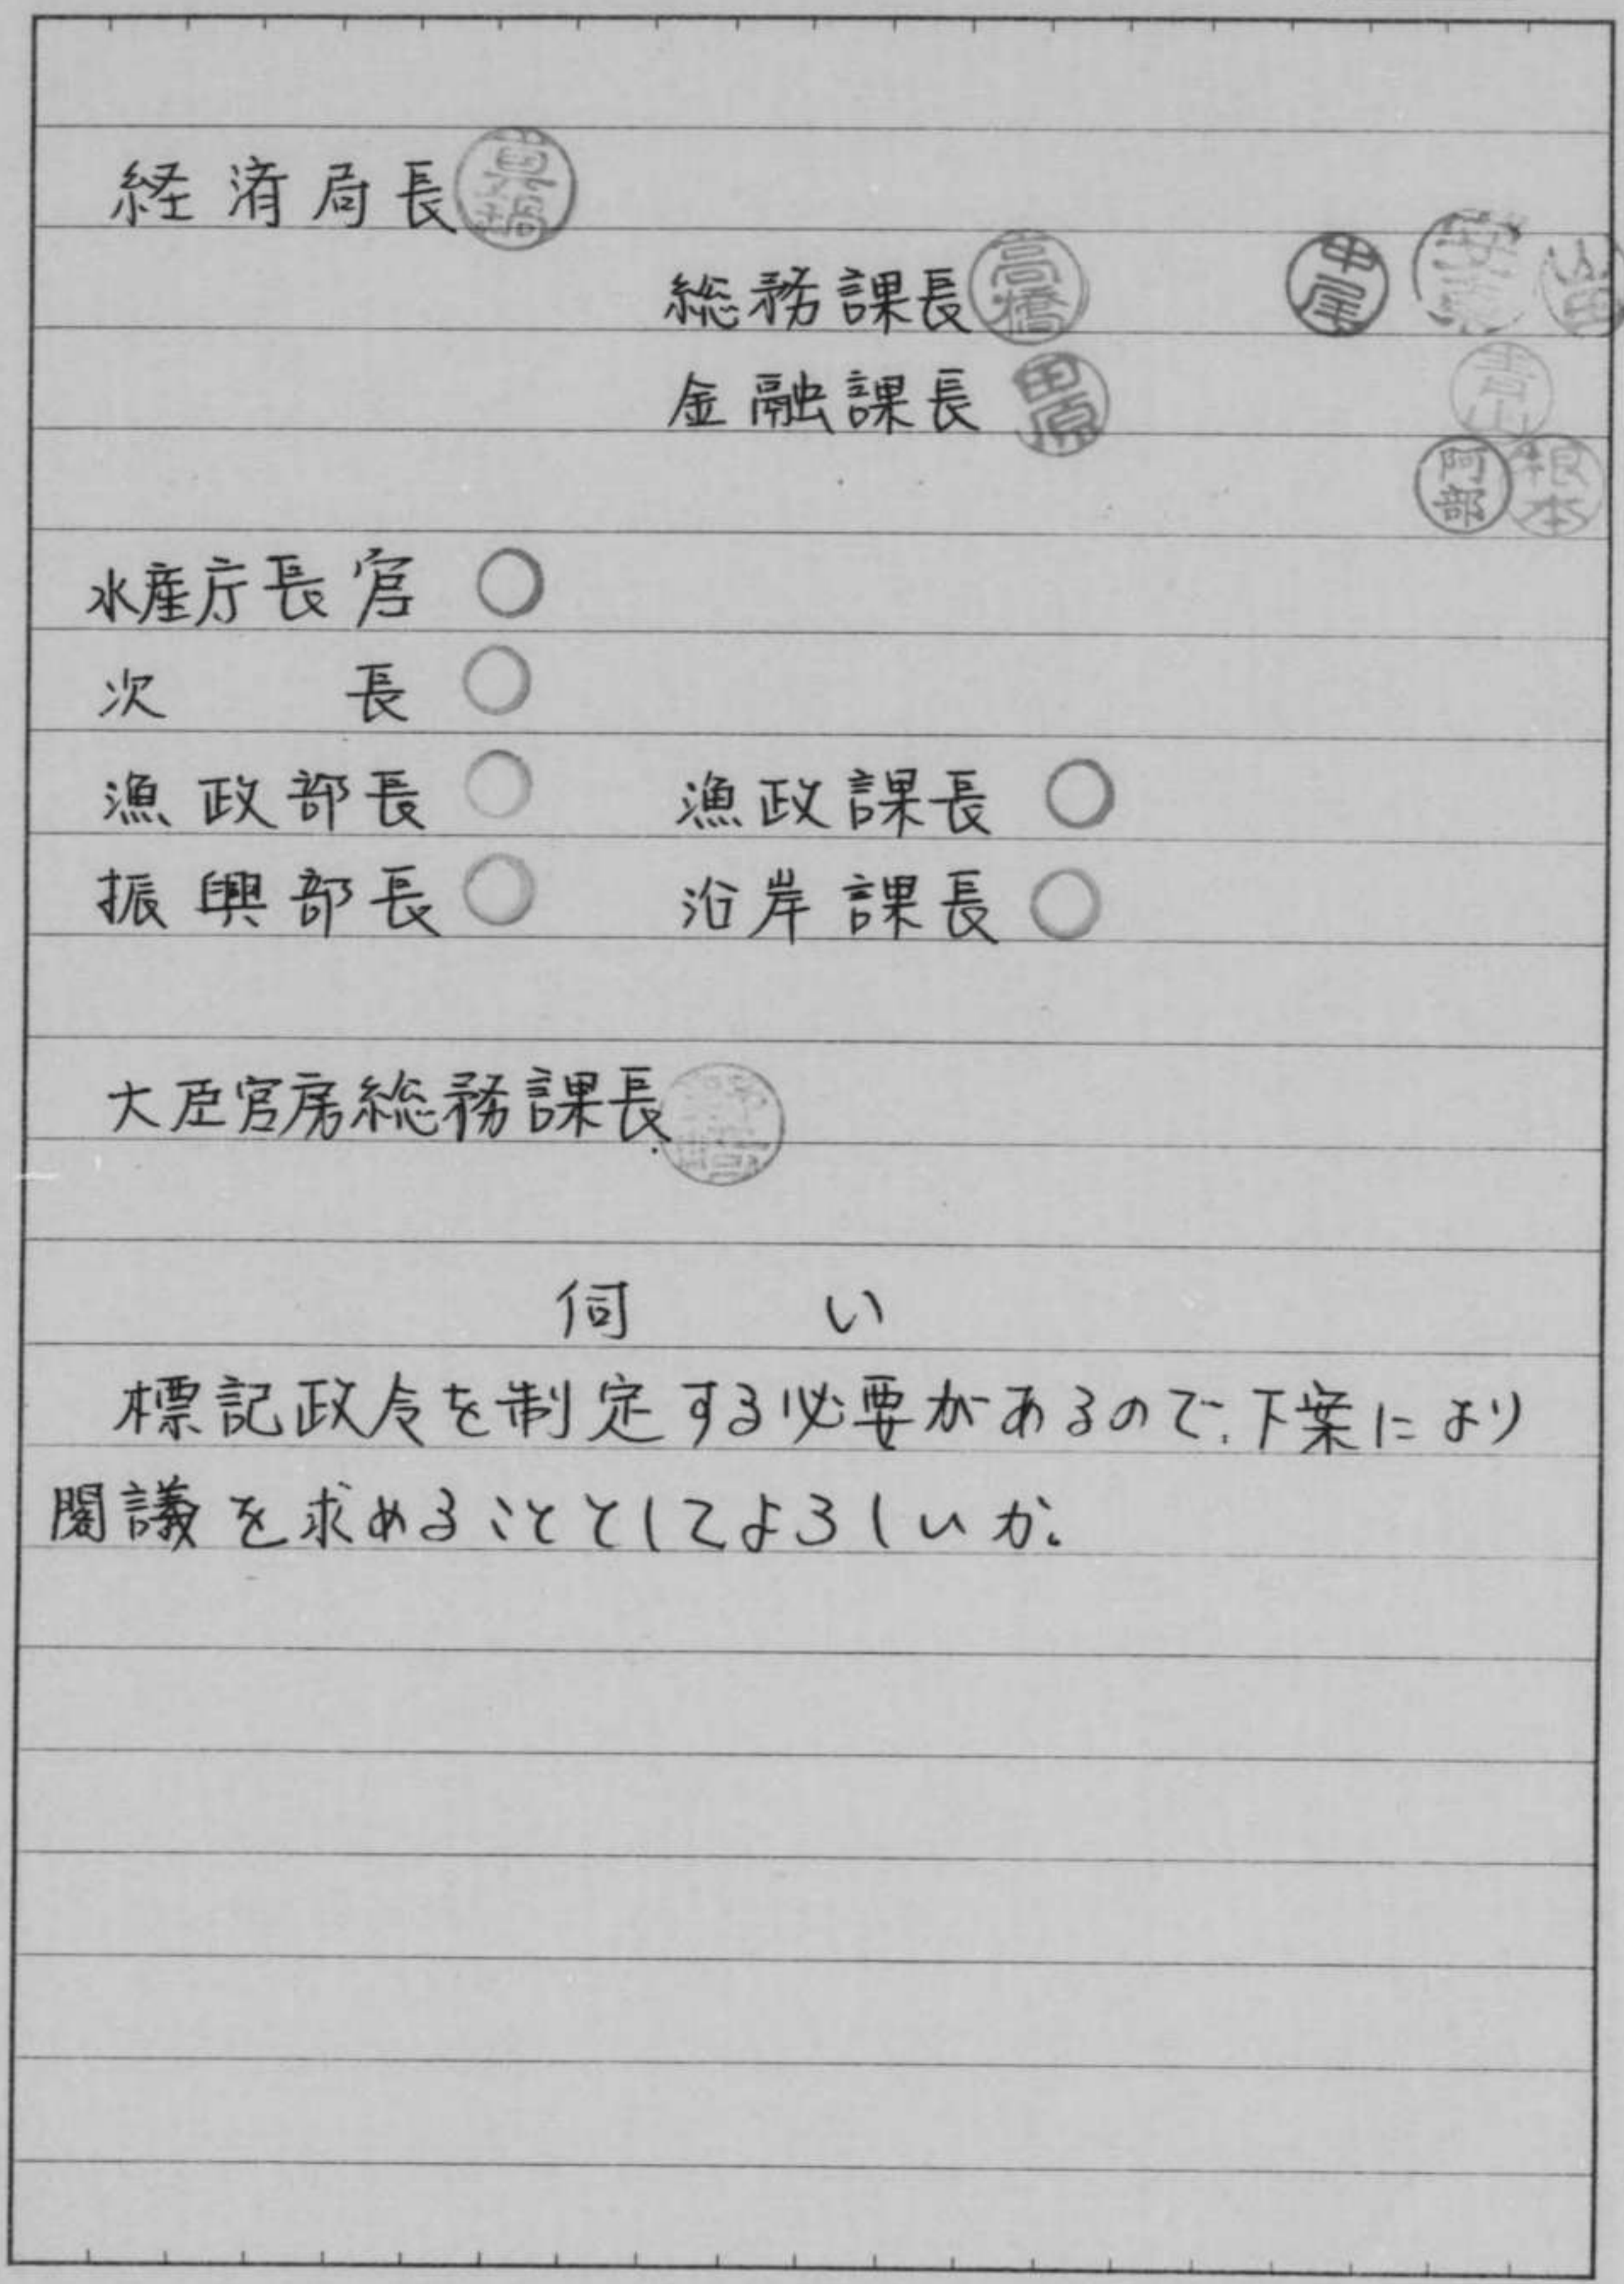 経済局長
総務課長 高橋 中尾
金融課長 田原 青山
阿部 根本
水産庁長官
次長
漁政部長 漁政課長
振興部長 沿岸課長
大臣官房総務課長
伺い
標記政令を制定する必要があるので、下案により
閣議を求めることとしてよろしいか。